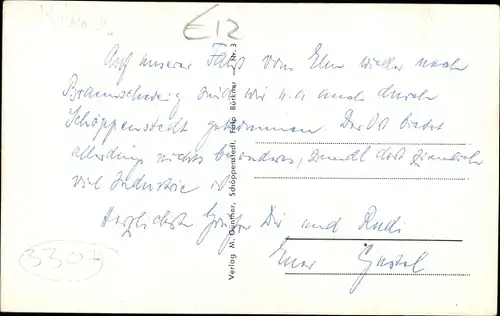 E12
Auf unserer Fahrt vom Elm wieder nach
Braunschweig sind wir u.a. auch durch
Schöppenstedt gekommen. Der Ort bietet
allerdings nichts besonderes, zumal dort ziemlich
viel Industrie ist.
Herzlichste Grüße Dir und Rudi
Euer Gustel
3307
Verlag M. Günther, Schöppenstedt, Foto Bürkner — Nr. 3